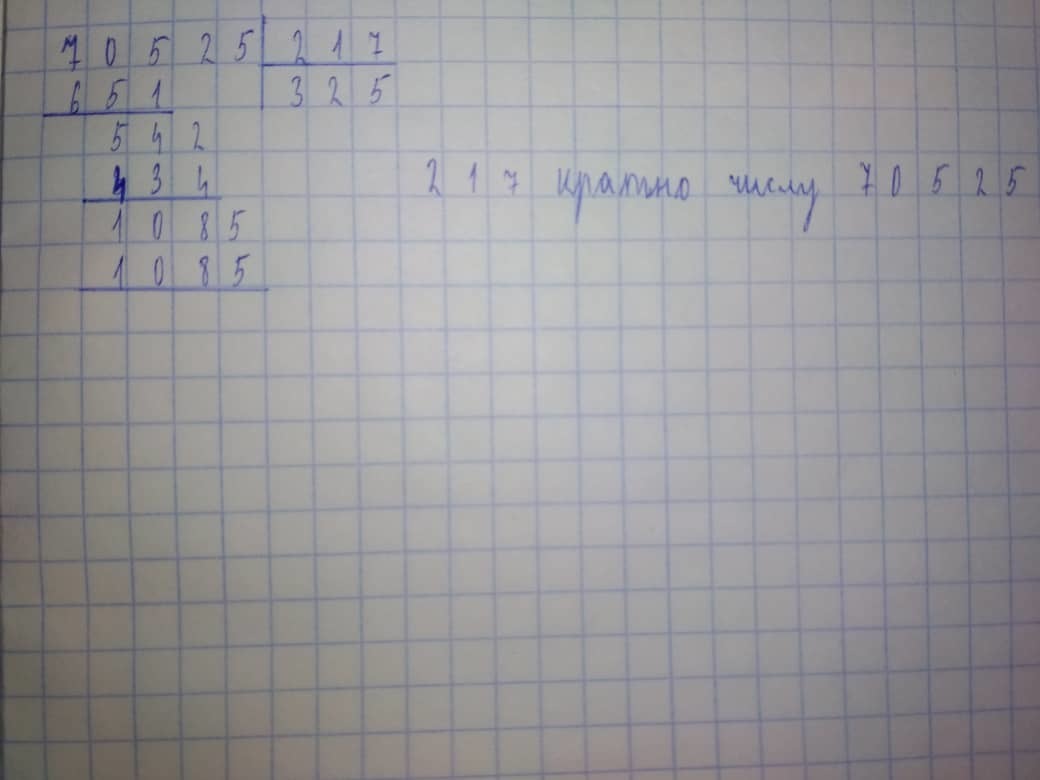 70525 217
651 325
542
434 217 кратно числу 70525
1085
1085